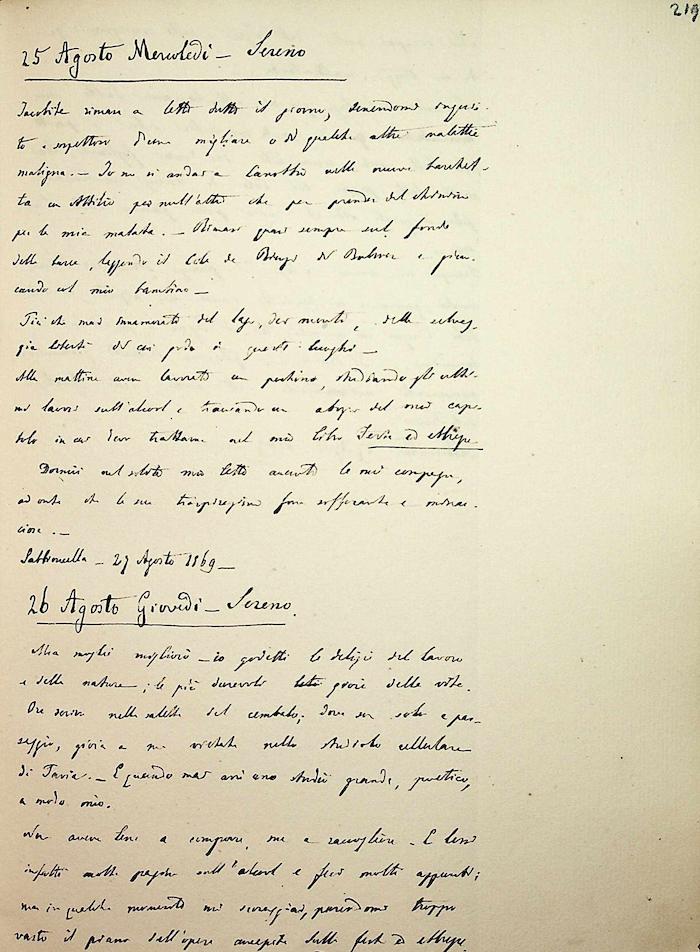 219
25 Agosto Mercoledì – Sereno
Jacobita rimase a letto tutto il giorno, tenendomi inquie-
to e sospettoso d'una migliare o di qualche altra malattia
maligna. – Io me ne andai a Canotto nella nuova barchet-
ta con Attilio più null'altro che per prender del chinino
per la mia malata. – Rimasi quasi sempre sul fondo
della barca, leggendo il de Bulwer e
col mio bambino –
che mai innamorato del lago, dei monti, della selvag-
gia libertà di cui godo in questi luoghi –
Alla mattina avea lavorato un pochino, studiando gli ulti-
mi lavori sull'alcool e tracciando un abozzo del mio capi-
tolo in cui devo trattarne nel mio libro
Dormii nel solito mio letto accanto la mia compagna,
ad onta che la sua traspirazione fosse soffocante e minac-
ciosa. –
Sabbioncella – 27 Agosto 1869 –
26 Agosto Giovedì – Sereno.
Mia moglie migliorò – io godetti le delizie del lavoro
e della natura; le più durevoli gioie della vita.
Ora scrivo nella saletta del cembalo, dove son solo e pas-
seggio, gioia a me vietata nello studiolo cellulare
di Pavia. – E quando mai avrò uno studio grande, poetico,
a modo mio.
Non aveva lena a comporre, ma a raccogliere – E lessi
infatti molte pagine sull'alcool e feci molti appunti;
ma in qualche momento mi scoraggiai, parendomi troppo
vasto il piano dell'opera concepita sulle feste ed ebbrezze